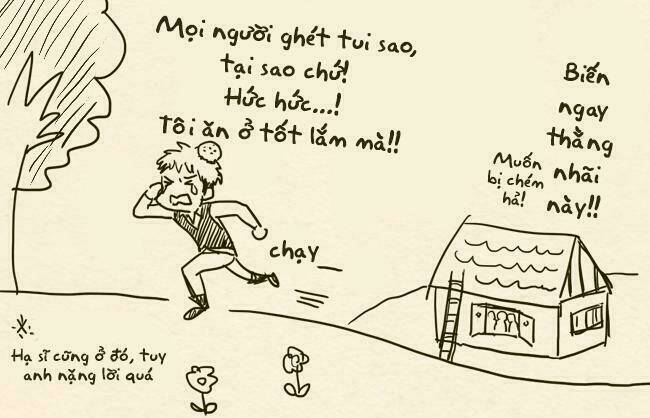 Mọi người ghét tui sao,
tại sao chứ!
Hức hức...!
Tôi ăn ở tốt lắm mà!!
Biến
ngay
thằng
nhãi
này!!
Muốn
bị chém
hả!
chạy
Hạ sĩ cũng ở đó, tuy
anh nặng lời quá